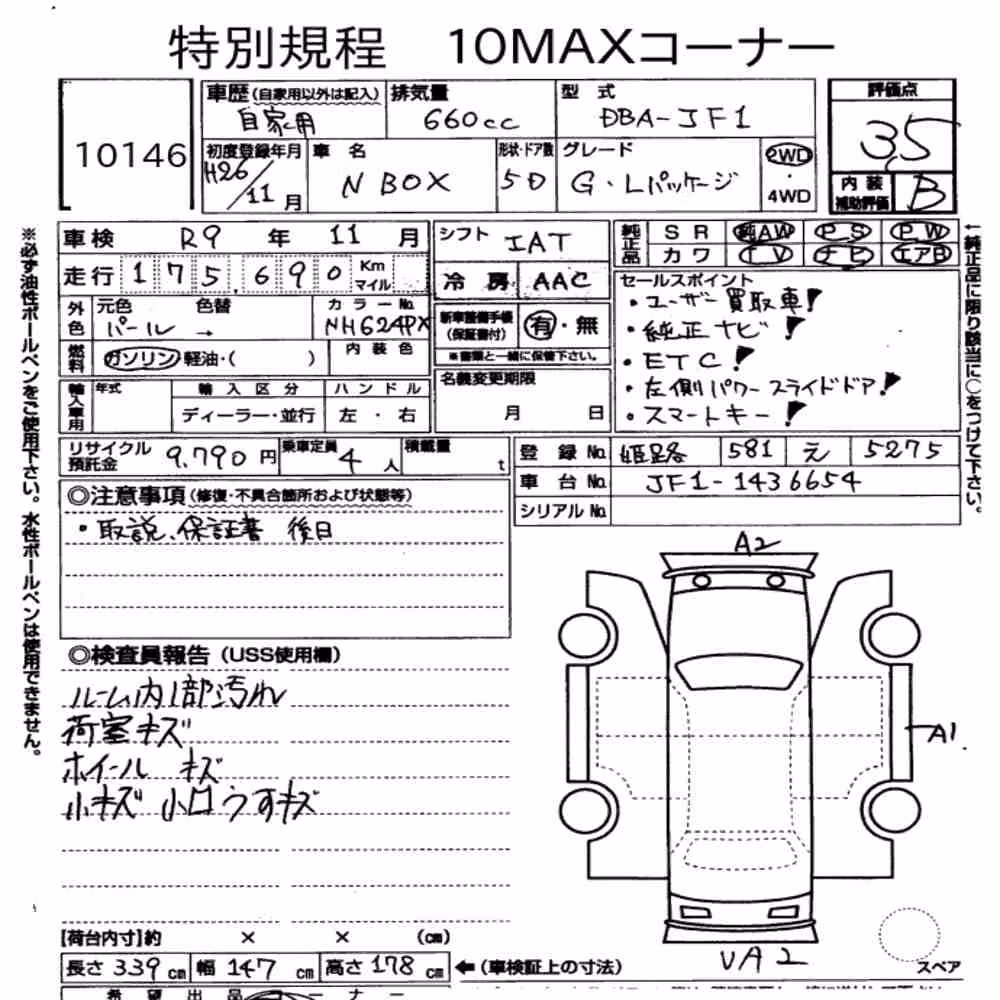 特別規程 10MAXコーナー
10146
車歴(自家用以外は記入) 排気量 型式 評価点
自家用 660cc DBA-JF1 3.5
初度登録年月 車名 形状・ドア数 グレード 2WD
H26/11月 N BOX 5D G・Lパッケージ ・4WD
内装補助評価 B
車検 R9年 11月 シフト IAT 純正品 SR 純AW PS PW
走行 175,690 Km マイル 冷房 AAC カワ TV ナビ エアB
外色 元色 パール 色替 → カラーNo. NH624PX
新車整備手帳(保証書付) 有・無
※書類と一緒に保管下さい。
燃料 ガソリン 軽油・( ) 内装色
輸入車用 年式 輸入区分 ハンドル
ディーラー・並行 左・右
名義変更期限 月 日
セールスポイント
・ユーザー買取車!
・純正ナビ!
・ETC!
・左側パワースライドドア!
・スマートキー!
リサイクル預託金 9,790円 乗車定員 4人 積載量 t
登録No. 姫路 581 え 5275
車台No. JF1-1436654
シリアルNo.
◎注意事項(修復・不具合箇所および状態等)
・取説、保証書 後日
◎検査員報告(USS使用欄)
ルーム内1部汚れ
荷室キズ
ホイール キズ
小キズ 小凹 うすキズ
A2
A1
UA2
スペア
【荷台内寸】約 × × (cm)
長さ 339cm 幅 147cm 高さ 178cm ←(車検証上の寸法)
※必ず油性ボールペンをご使用下さい。水性ボールペンは使用できません。
↑純正品に限り該当に○をつけて下さい。